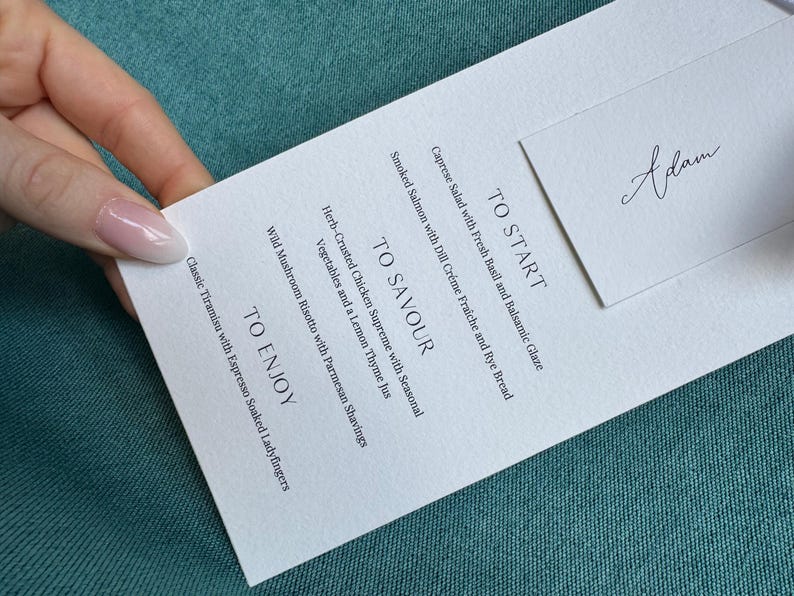 Adam
TO START
Caprese Salad with Fresh Basil and Balsamic Glaze
Smoked Salmon with Dill Créme Fraîche and Rye Bread
TO SAVOUR
Herb-Crusted Chicken Supreme with Seasonal
Vegetables and a Lemon Thyme Jus
Wild Mushroom Risotto with Parmesan Shavings
TO ENJOY
Classic Tiramisu with Espresso Soaked Ladyfingers